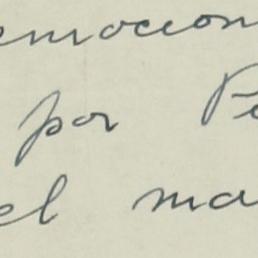 emocion
por Pe
el ma